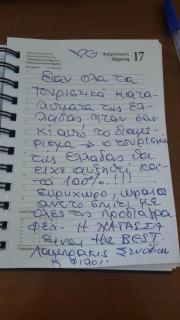 Φεβρουάριος
Πέμπτη 17
Εαν ολα τα
τουριστικά κατα-
λύματα της ελ-
λαδας ήταν σαν
κι αυτό το διαμε-
ρισμα → ο τουρισμός
της ελλάδας θα
ειχε αυξηθεί κα-
τά 100% !!!
Ευρύχωρο, ωραίο
άνετο σπίτι με
όλες τις προδιαγρα
φές - Η ΧΑΤΑΣΙΑ
Είναι the BEST